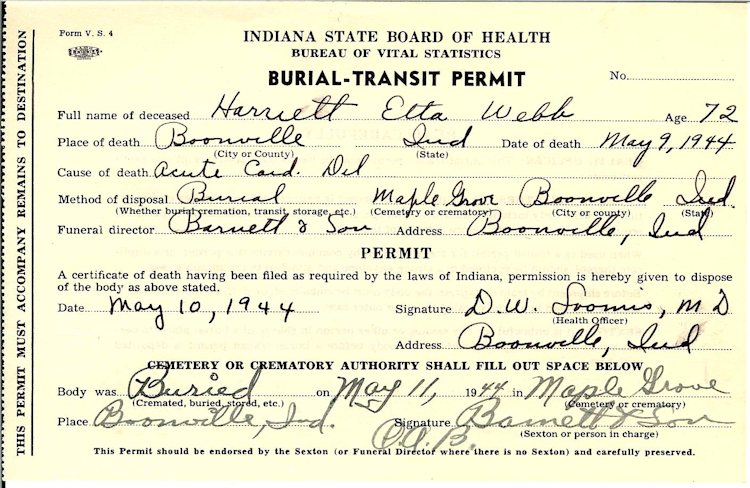 Form V. S. 4
INDIANA STATE BOARD OF HEALTH
BUREAU OF VITAL STATISTICS
BURIAL-TRANSIT PERMIT
No.
Full name of deceased Harriett Etta Webb Age 72
Place of death Boonville Ind Date of death May 9, 1944
(City or County) (State)
Cause of death Acute Card. Del
Method of disposal Burial Maple Grove Boonville Ind.
(Whether burial, cremation, transit, storage, etc.) (Cemetery or crematory) (City or county) (State)
Funeral director Barnett & Son Address Boonville, Ind
PERMIT
A certificate of death having been filed as required by the laws of Indiana, permission is hereby given to dispose
of the body as above stated.
Date May 10, 1944 Signature D. W. M D
(Health Officer)
Address Boonville, Ind
CEMETERY OR CREMATORY AUTHORITY SHALL FILL OUT SPACE BELOW
Body was Buried on May 11, 1944 in Maple Grove
(Cremated, buried, stored, etc.) (Cemetery or crematory)
Place Boonville, Ind. Signature Barnett & Son
(Sexton or person in charge)
This Permit should be endorsed by the Sexton (or Funeral Director where there is no Sexton) and carefully preserved.
THIS PERMIT MUST ACCOMPANY REMAINS TO DESTINATION